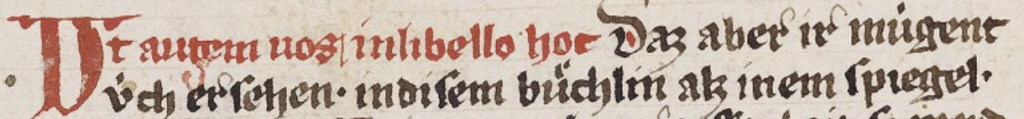 Ut autem uos inlibello hoc Daz aber ir mügent
v̊ch ersehen· indisem bůchlin alz inem spiegel·